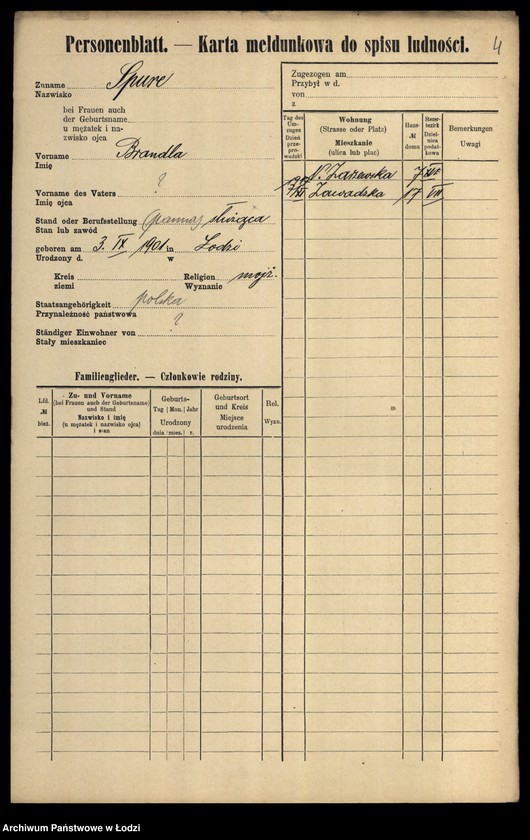 Personenblatt. — Karta meldunkowa do spisu ludności.
4
Zuname Spure
Nazwisko
bei Frauen auch
der Geburtsname
u mężatek i na-
zwisko ojca
Vorname Brandla
Imię
Vorname des Vaters ?
Imię ojca
Stand oder Berufsstellung (panna) służąca
Stan lub zawód
geboren am 3. IX 1901 in Łodzi
Urodzony d. w
Kreis Religion mojż.
ziemi Wyznanie
Staatsangehörigkeit polska
Przynależność państwowa
Ständiger Einwohner von ?
Stały mieszkaniec
Familienglieder. — Członkowie rodziny.
Lfd. № bież.
Zu- und Vorname
(bei Frauen auch der Geburtsname)
und Stand
Nazwisko i imię
(u mężatek i nazwisko ojca)
i stan
Geburts-
Tag Mon. Jahr
Urodzony
dnia mies. r.
Geburtsort
und Kreis
Miejsce
urodzenia
Rel.
Wyzn.
Zugezogen am
Przybył w d.
von
z
Tag des
Um-
zuges
Dzień
prze-
prowadzki
Wohnung
(Strasse oder Platz)
Mieszkanie
(ulica lub plac)
Haus-
№
domu
Steuer-
bezirk
Dziel-
nica
podat-
kowa
Bemerkungen
Uwagi
7
Zawadzka 17 VII
Archiwum Państwowe w Łodzi